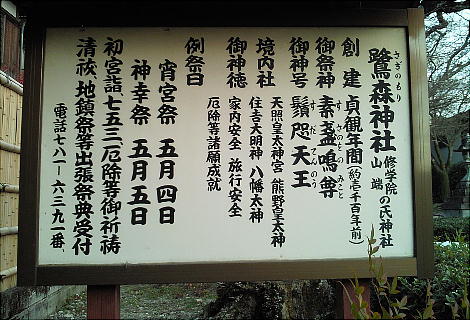 鷺森神社 修学院 山端 の氏神社
さぎのもり
創建 貞観年間(約壱千百年前)
御祭神 素盞嗚尊
すさのをのみこと
御神号 鬚咫天王
すだてんのう
境内社 天照皇太神宮 熊野皇太神
住吉大明神 八幡太神
御神徳 家内安全 旅行安全
厄除等諸願成就
例祭日
宵宮祭 五月四日
神幸祭 五月五日
初宮詣、七五三、厄除等御祈祷
清祓、地鎮祭等出張祭典受付
電話七八一-六三九一番、